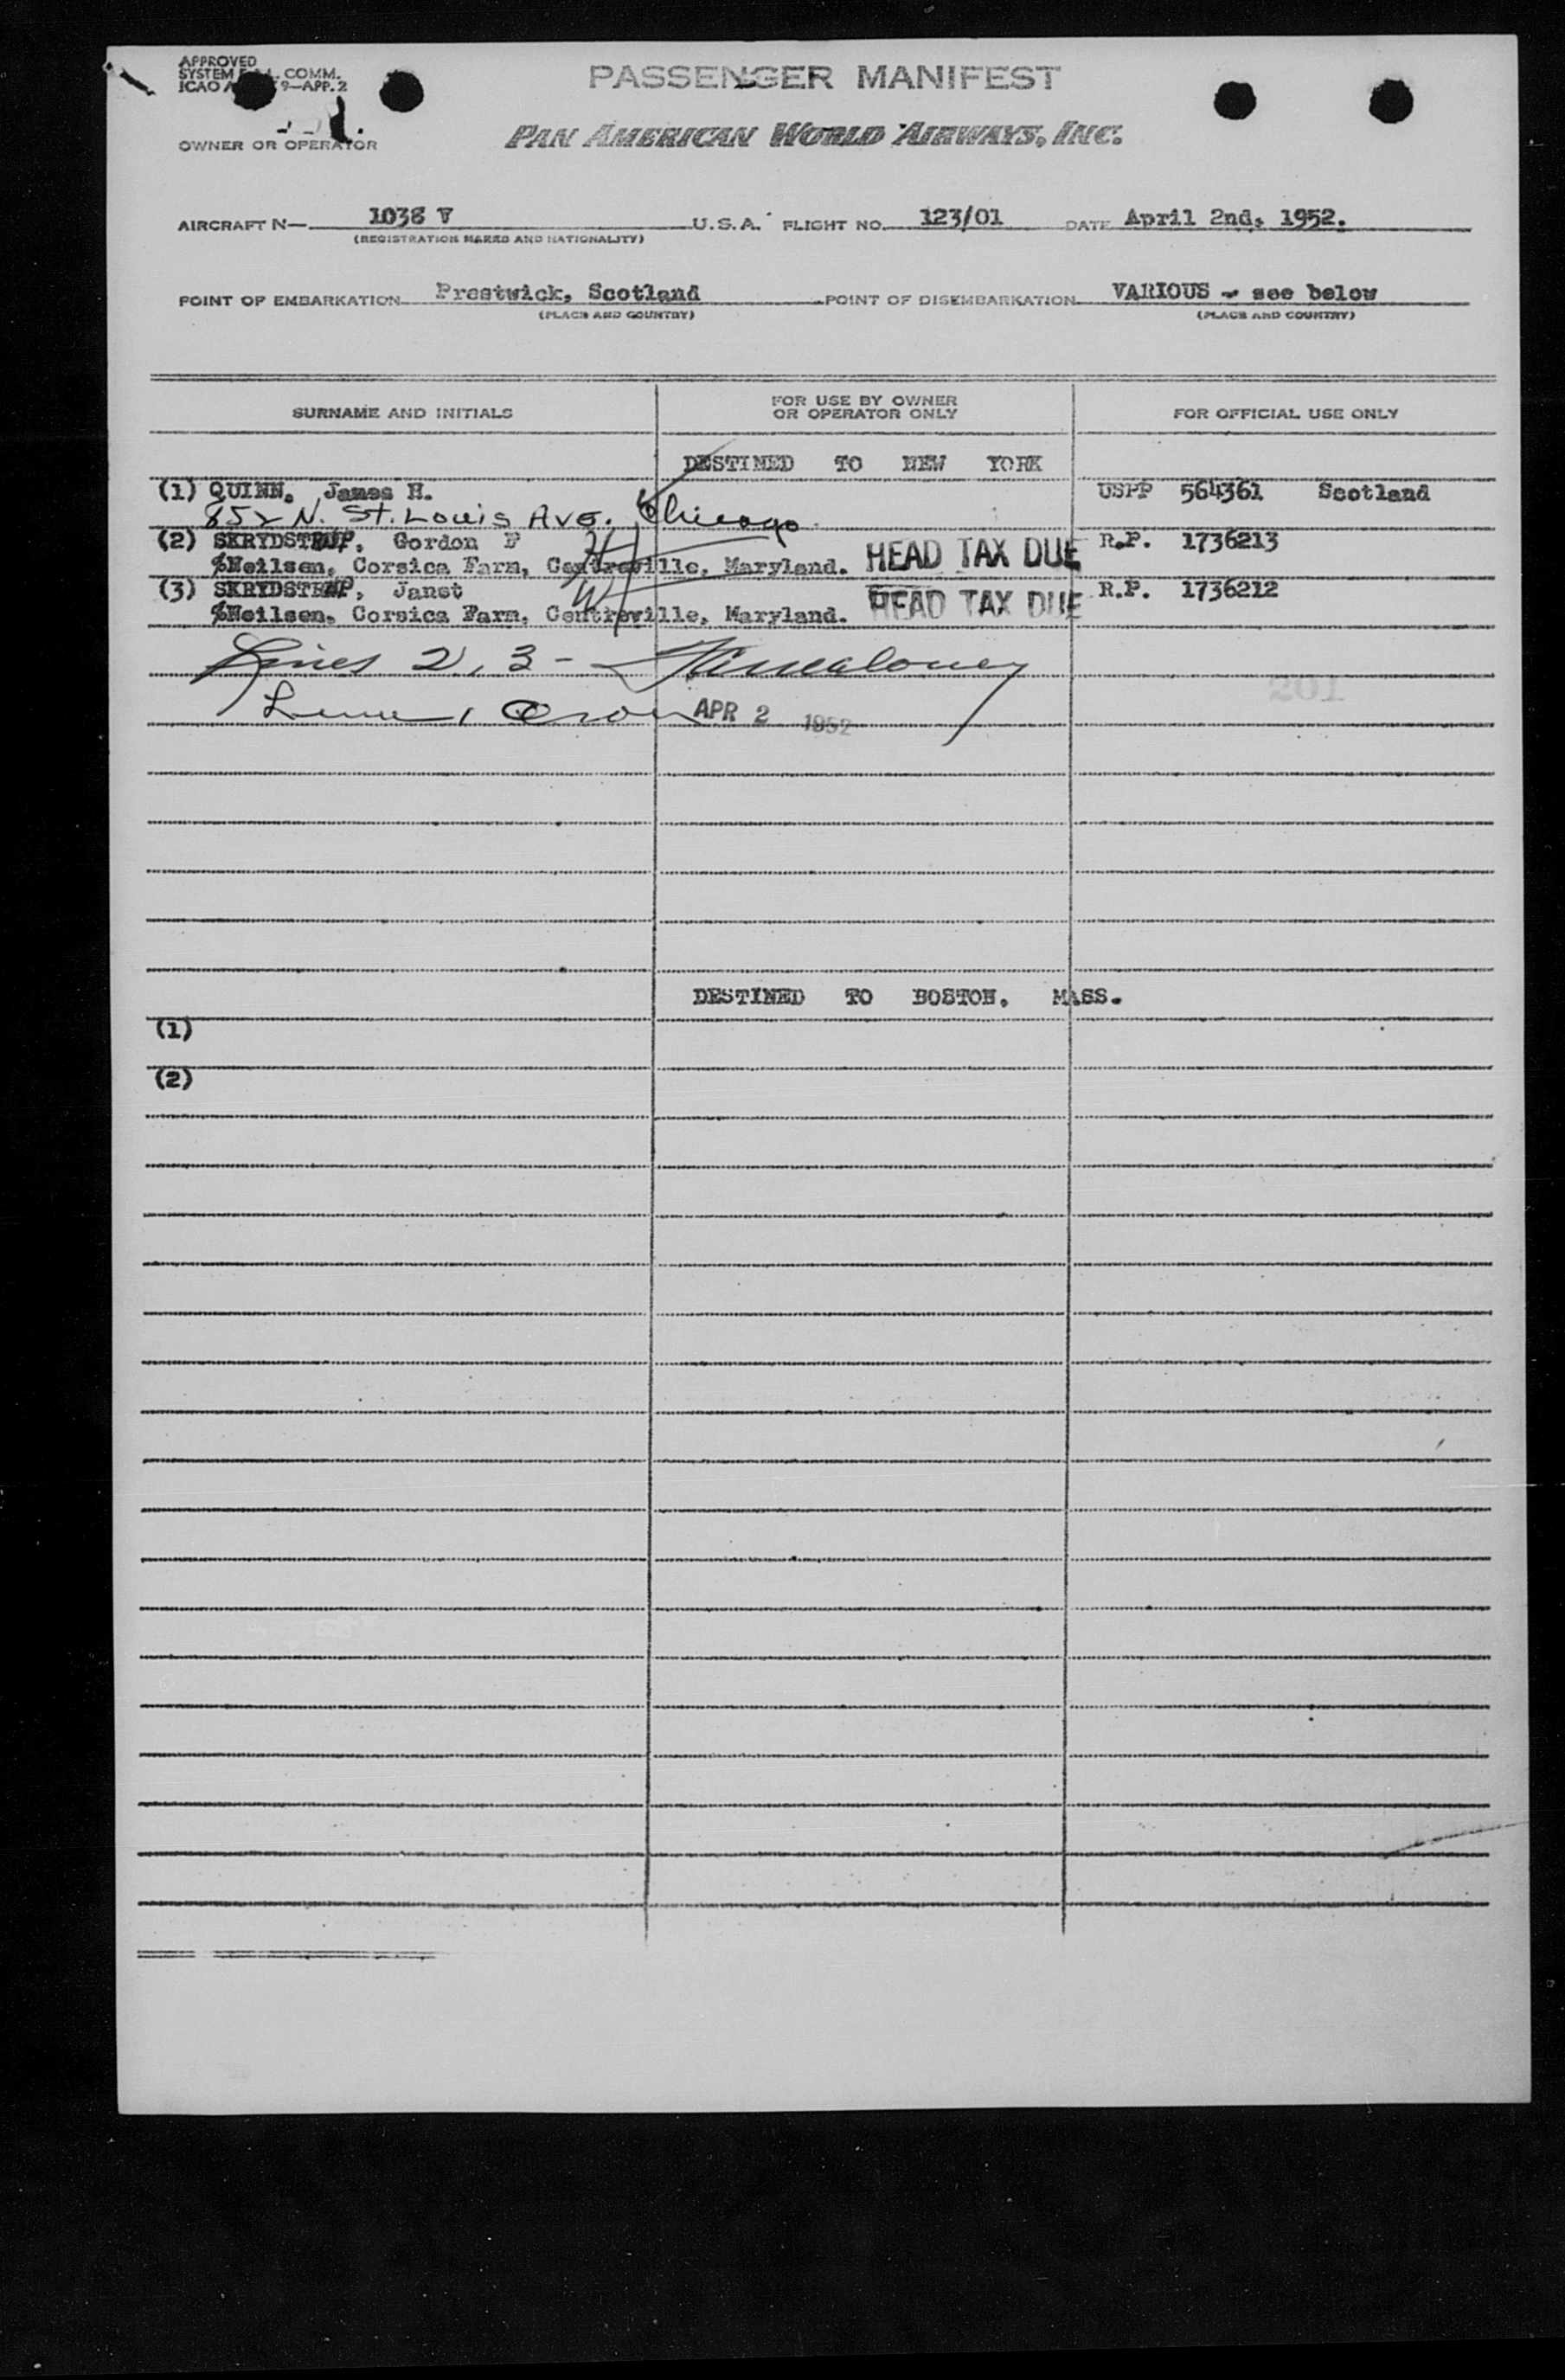 APPROVED
SYSTEM COMM.
ICAO 9—APP. 2
PASSENGER MANIFEST
OWNER OR OPERATOR
PAN AMERICAN WORLD AIRWAYS, INC.
AIRCRAFT N— 1038 V U.S.A. FLIGHT NO. 123/01 DATE April 2nd, 1952.
(REGISTRATION MARKS AND NATIONALITY)
POINT OF EMBARKATION Prestwick, Scotland POINT OF DISEMBARKATION VARIOUS - see below
(PLACE AND COUNTRY) (PLACE AND COUNTRY)
SURNAME AND INITIALS FOR USE BY OWNER OR OPERATOR ONLY FOR OFFICIAL USE ONLY
DESTINED TO NEW YORK
(1) QUINN, James H. USPP 564361 Scotland
852 N. St. Louis Ave. Chicago
(2) SKRYDSTRUP, Gordon F R.P. 1736213
%Neilsen, Corsica Farm, Centreville, Maryland. HEAD TAX DUE
(3) SKRYDSTRUP, Janet R.P. 1736212
%Neilsen, Corsica Farm, Centreville, Maryland. HEAD TAX DUE
Lines 2, 3 -
201
APR 2 1952
DESTINED TO BOSTON, MASS.
(1)
(2)